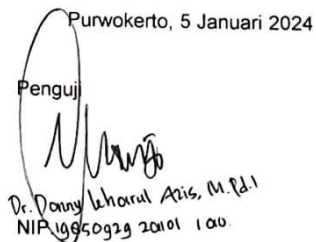 Purwokerto, 5 Januari 2024
Penguji
Dr. Donny Khoirul Azis, M.Pd.I
NIP.19850929 201101 1 010